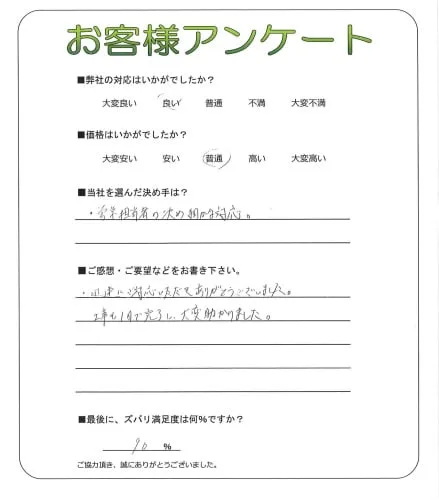 お客様アンケート
■弊社の対応はいかがでしたか?
大変良い 良い 普通 不満 大変不満
■価格はいかがでしたか?
大変安い 安い 普通 高い 大変高い
■当社を選んだ決め手は?
・営業担当者の決め細かな対応。
■ご感想・ご要望などをお書き下さい。
・迅速にご対応いただきありがとうございました。
工事も1日で完了し、大変助かりました。
■最後に、ズバリ満足度は何%ですか?
90 %
ご協力頂き、誠にありがとうございました。